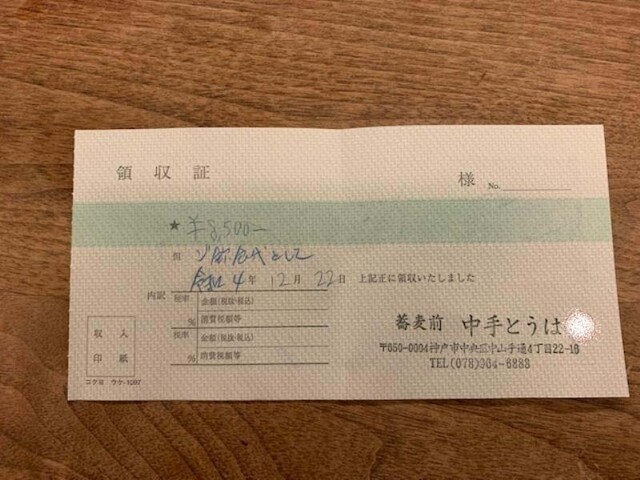 領収証
様 No.
★ ¥8,500-
但 ご飲食代として
令和4年12月22日 上記正に領収いたしました
内訳 税率 % 金額(税抜・税込)
消費税額等
税率 % 金額(税抜・税込)
消費税額等
収入
印紙
コクヨ ウケ-1097
蕎麦前 中手とうは
〒650-0004神戸市中央区中山手通4丁目22-16
TEL(078)904-6883